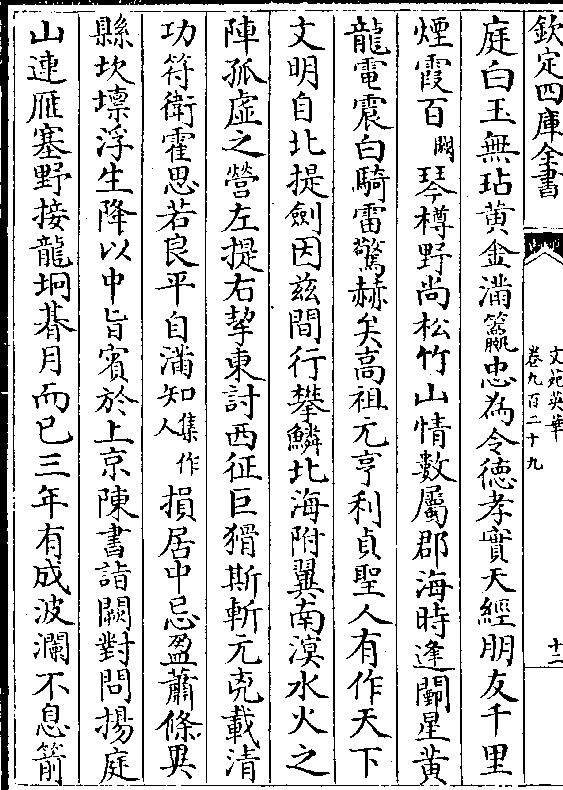 欽定四庫全書
文苑英華
卷九百二十九
十二
庭白玉無玷黄金滿籯忠為令徳孝實天經朋友千里
煙霞百闕琴樽野尚松竹山情數屬郡海時逢鬭星黄
龍電震白騎雷驚赫矣高祖元亨利貞聖人有作天下
文明自北提劍因兹間行攀鱗北海附翼南溟水火之
陣孤虛之營左提右挈東討西征巨猾斯斬元兇載清
功符衛霍思若良平自滿知集作人損居中忌盈蕭條異
縣坎壈浮生降以中旨賓於上京陳書詣闕對問揚庭
山連雁塞野接龍坰朞月而已三年有成波瀾不息箭